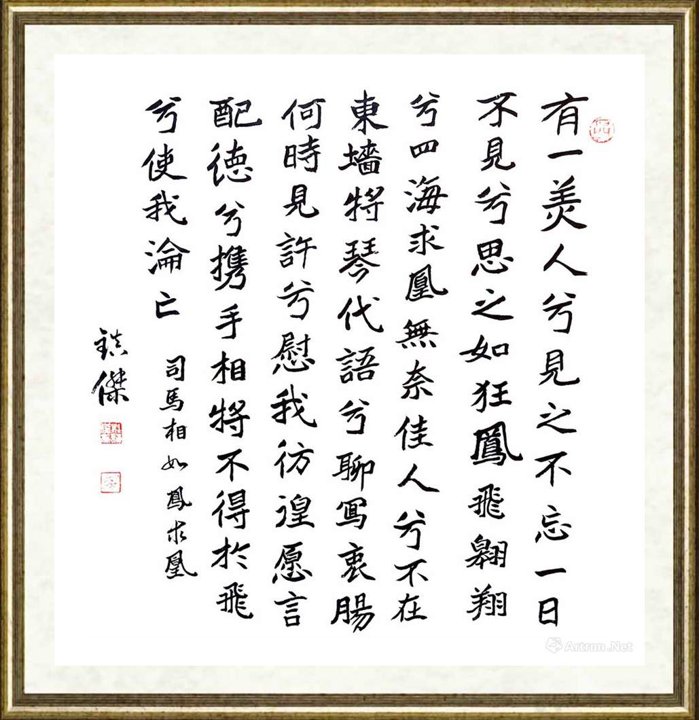 有一美人兮見之不忘一日
不見兮思之如狂鳳飛翱翔
兮四海求凰無奈佳人兮不在
東墻將琴代語兮聊寫衷腸
何時見許兮慰我彷徨愿言
配德兮携手相將不得於飛
兮使我淪亡
司馬相如鳳求凰
鎮傑
Artron.Net